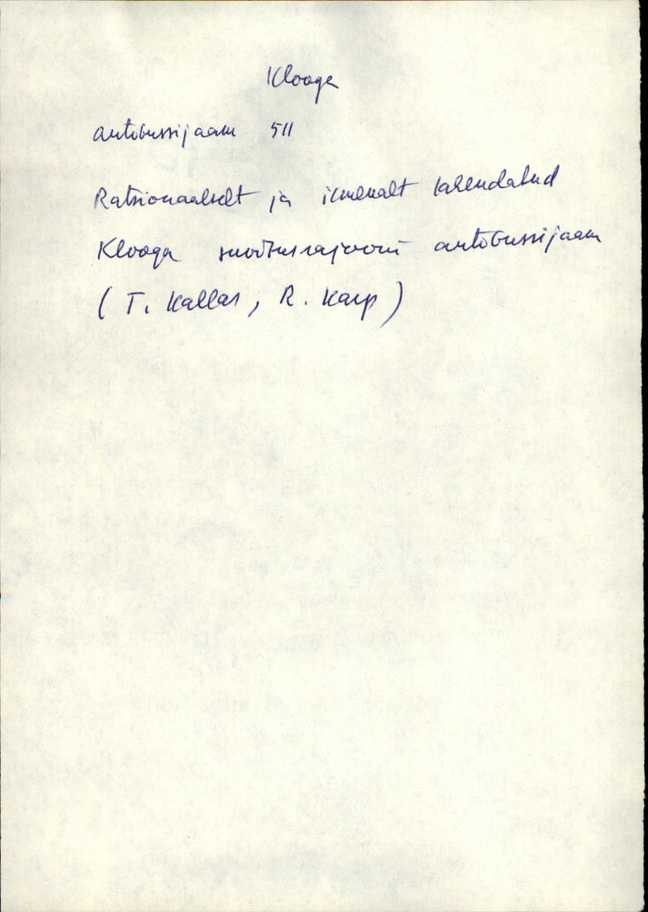 Klooga
autobussijaam 511
Ratsionaalselt ja ilmekalt lahendatud
Klooga suvitusrajooni autobussijaam
(T. Kallas, R. Karp)